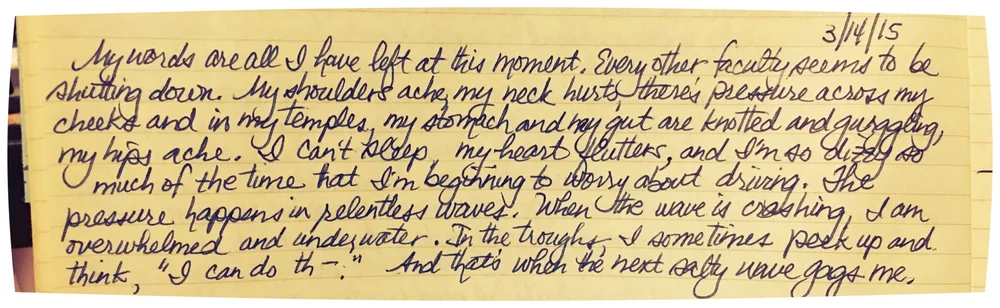 3/14/15
My words are all I have left at this moment. Every other faculty seems to be
shutting down. My shoulders ache, my neck hurts, there's pressure across my
cheeks and in my temples, my stomach and my gut are knotted and gurggling,
my hips ache. I can't sleep, my heart flutters, and I'm so dizzy so
much of the time that I'm beginning to worry about driving. The
pressure happens in relentless waves. When the wave is crashing, I am
overwhelmed and underwater. In the troughs, I sometimes peek up and
think, "I can do th—." And that's when the next salty wave gags me.